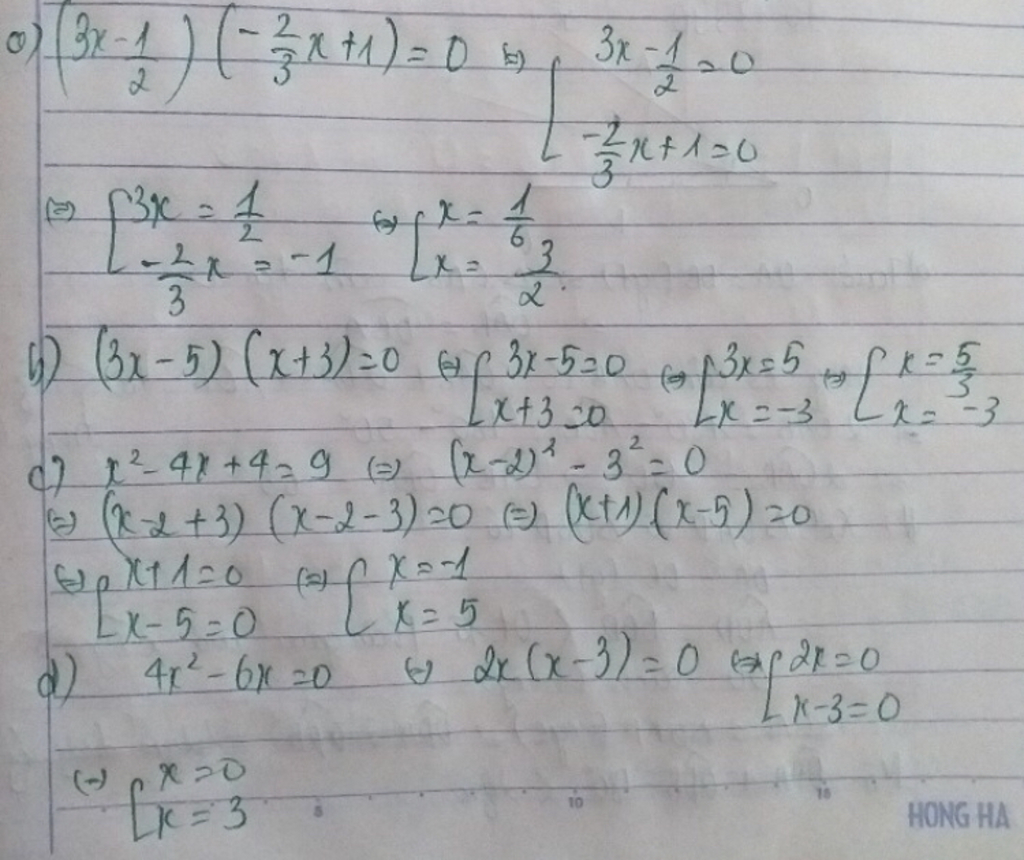 a) (3x - 1/2) (-2/3 x + 1) = 0 ⇔ [ 3x - 1/2 = 0
-2/3 x + 1 = 0
⇔ [ 3x = 1/2 ⇔ [ x = 1/6
-2/3 x = -1 x = 3/2
b) (3x - 5) (x + 3) = 0 ⇔ [ 3x - 5 = 0 ⇔ [ 3x = 5 ⇔ [ x = 5/3
x + 3 = 0 x = -3 x = -3
c) x² - 4x + 4 = 9 ⇔ (x - 2)² - 3² = 0
⇔ (x - 2 + 3) (x - 2 - 3) = 0 ⇔ (x + 1) (x - 5) = 0
⇔ [ x + 1 = 0 ⇔ [ x = -1
x - 5 = 0 x = 5
d) 4x² - 6x = 0 ⇔ 2x (x - 3) = 0 ⇔ [ 2x = 0
x - 3 = 0
⇔ [ x = 0
x = 3
5 10 15
HONG HA